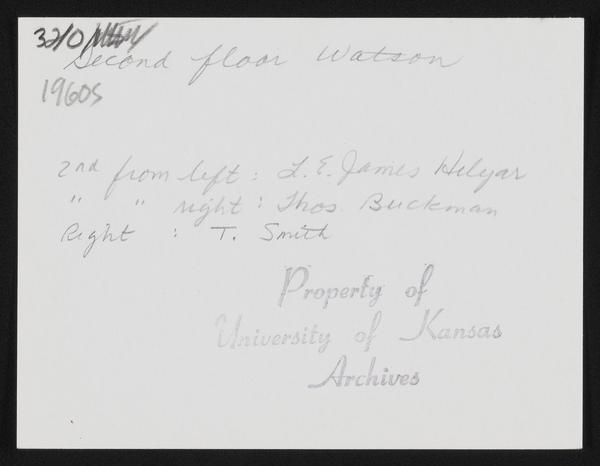 32/0
Second floor Watson
1960s
2nd from left : L. E. James Helyar
" " right : Thos. Buckman
Right : T. Smith
Property of
University of Kansas
Archives